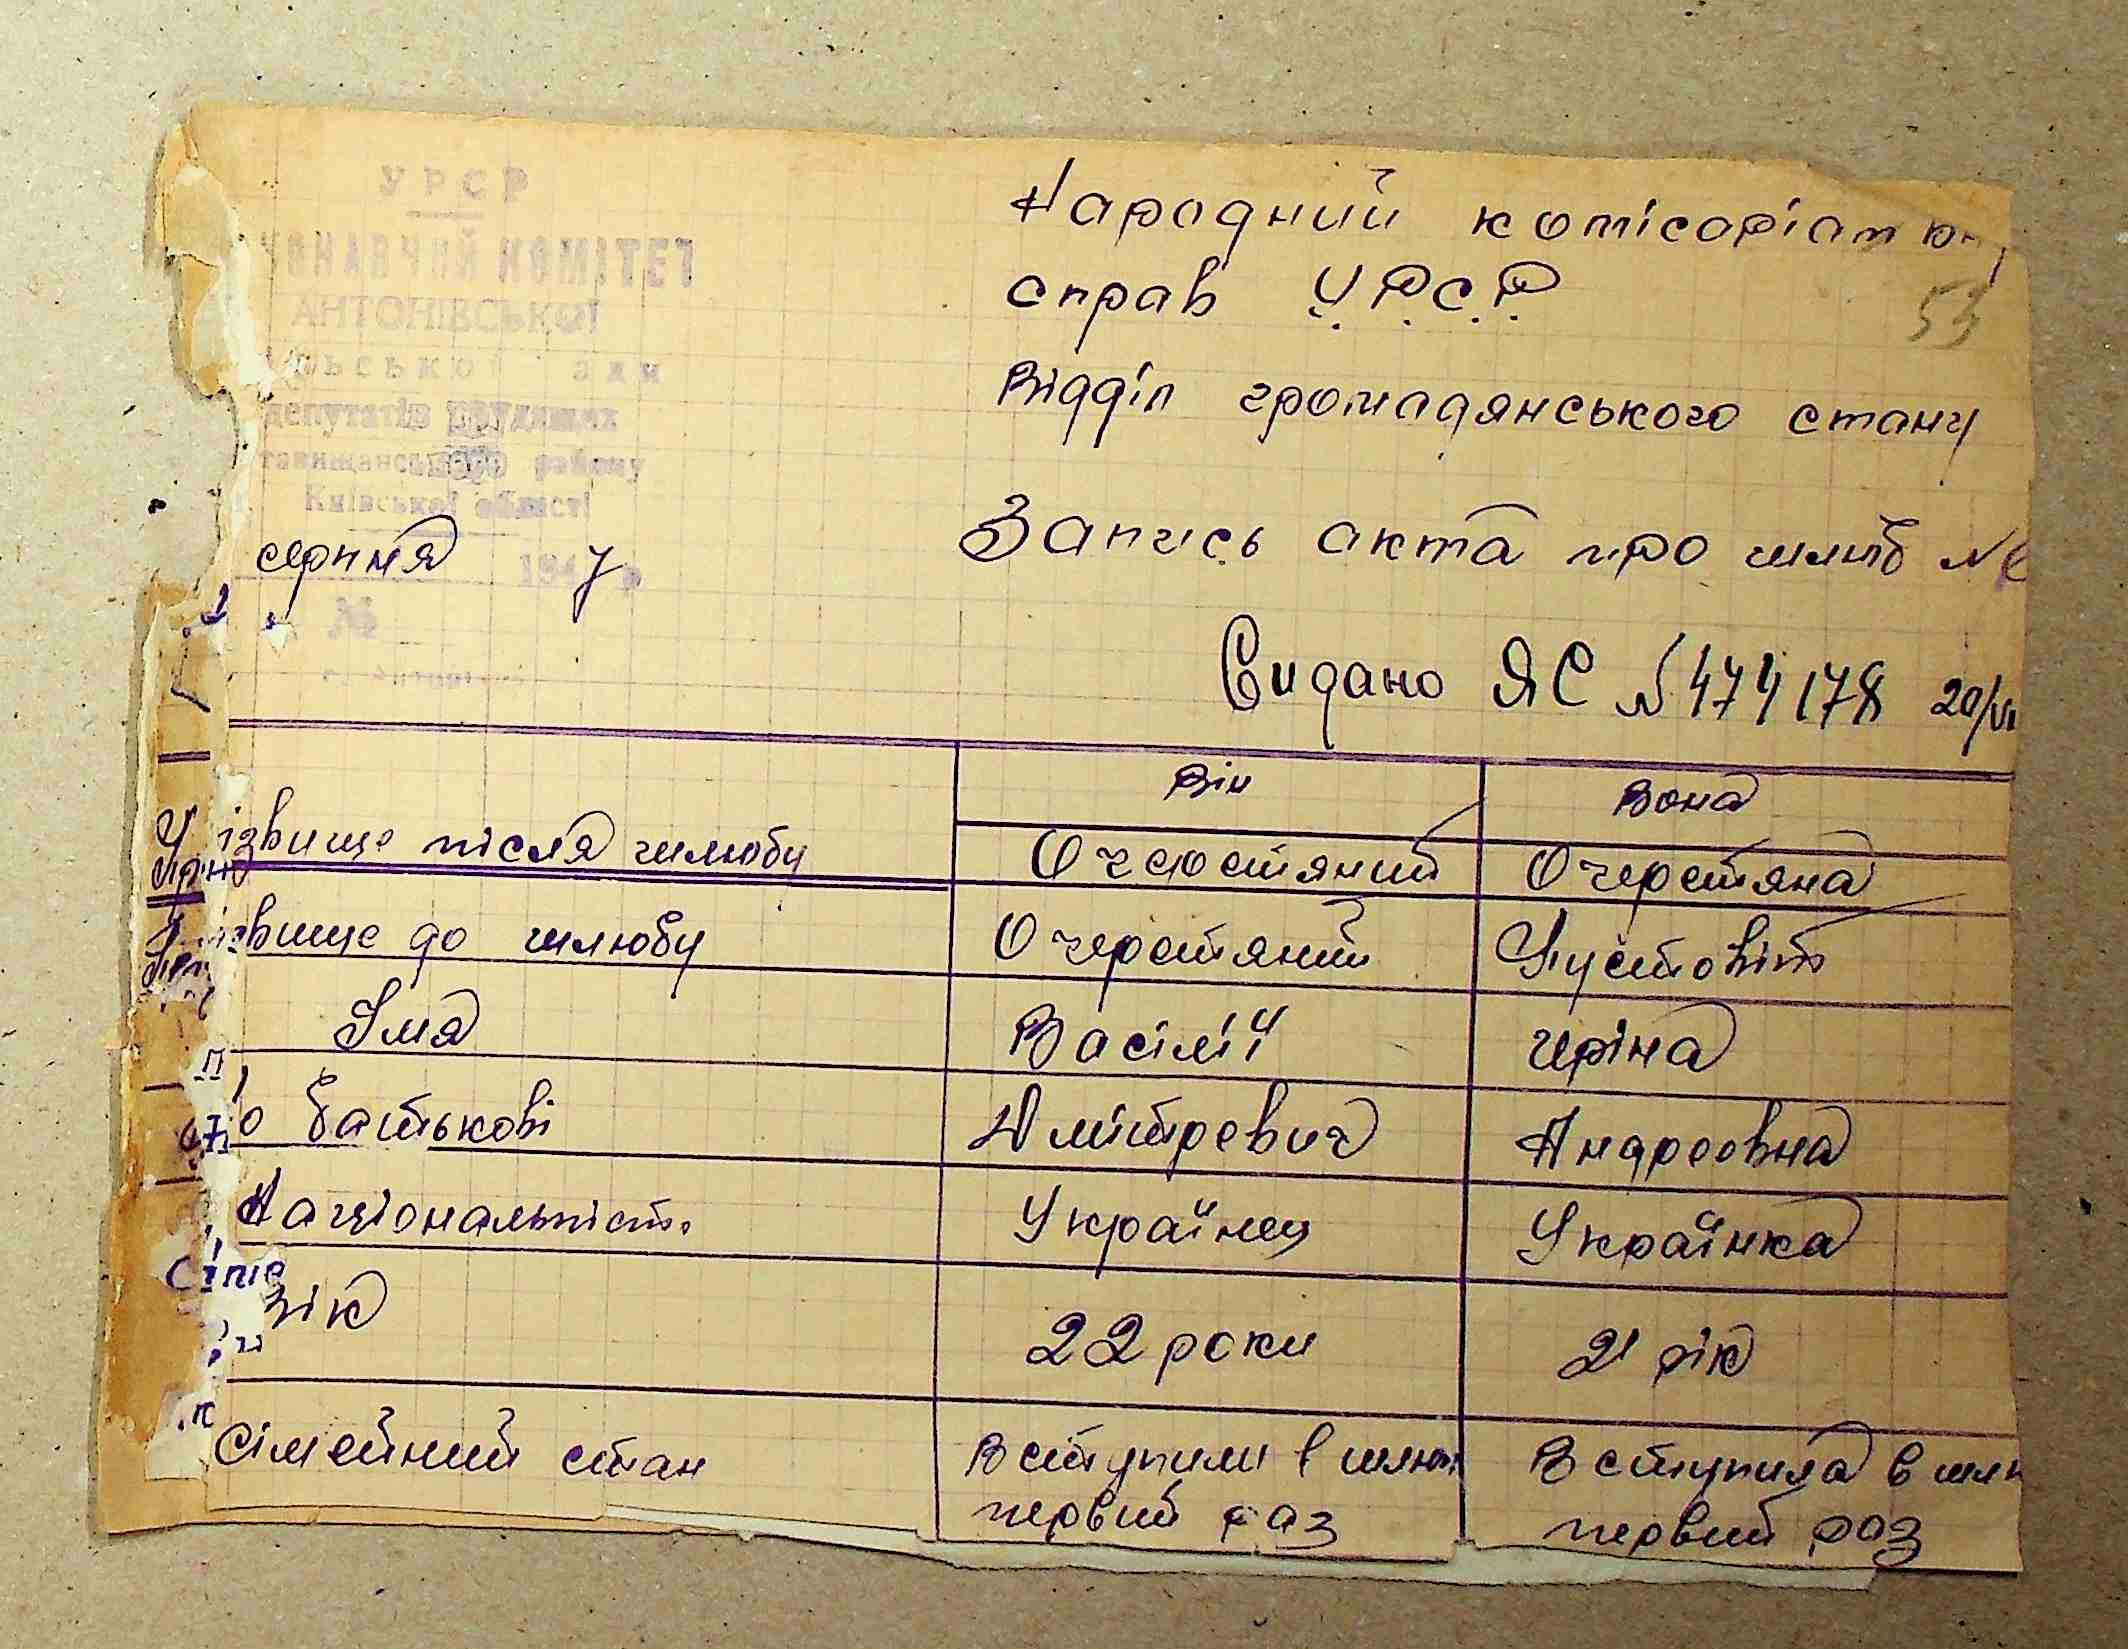 УРСР
КОМІТЕТ
АНТОНІВСЬКОЇ
депутатів трудящих
району
Київської області
серпня 194 7 р
№
Народний комісаріат
справ У.Р.С.Р
53
Відділ громадянського стану
Запись акта про шлюб №
Видано ЯС №474178 20/VI
Він Вона
ізвище після шлюбу Очеретяний Очеретяна
ізвище до шлюбу Очеретяний Пустовіт
Імя Васілій Iріна
о батькові Дмітревич Андреовна
Національність Українец Українка
Вік 22 роки 21 рік
Сімейний стан Вступили в шлюб Вступила в шлю
первий раз первий раз